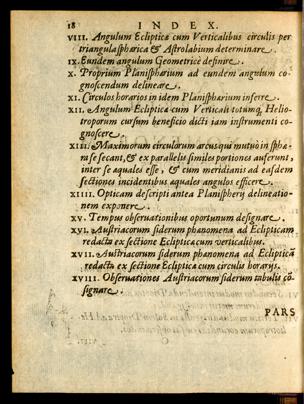 18 INDEX.
VIII. Angulum Eclipticæ cum Verticalibus circulis per
triangula sphærica & Astrolabium determinare.
IX. Eundem angulum Geometricè definire.
X. Proprium Planisphærium ad eundem angulum co-
gnoscendum delineare.
XI. Circulos horarios in idem Planisphærium inferre.
XII. Angulum Eclipticæ cum Verticali totumq́; Helio-
troporum cursum beneficio dicti iam instrumenti co-
gnoscere.
XIII. Maximorum circulorum arcus qui mutuò in sphæ-
ra se secant, & ex parallelis similes portiones auferunt,
inter se æquales esse, & cum meridianis ad easdem
sectiones incidentibus æquales angulos efficere.
XIIII. Opticam descripti antea Planispherij delineatio-
nem exponere.
XV. Tempus observationibus oportunum designare.
XVI. Austriacorum siderum phænomena ad Eclipticam
redacta ex sectione Eclipticæ cum verticalibus.
XVII. Austriacorum siderum phænomena ad Eclipticā
redacta ex sectione Eclipticæ cum circulis horarijs.
XVIII. Observationes Austriacorum siderum tabulis cō-
signare.
PARS